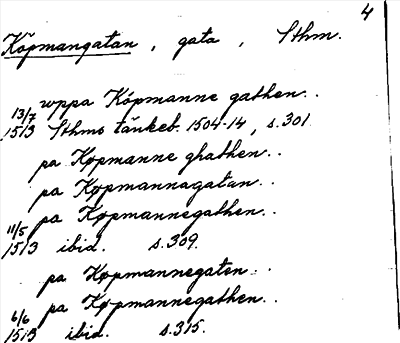 4
Köpmangatan, gata, Sthm.
wppa Köpmanne gathen..
13/7
1513 Sthms tänkeb. 1504-14, s.301
pa Køpmanne ghathen..
pa Køpmannagatan..
pa Køpmannegathen..
11/5
1513 ibid. s.309.
pa Køpmannegaten..
pa Køpmannegathen..
6/6
1513 ibid. s.315.